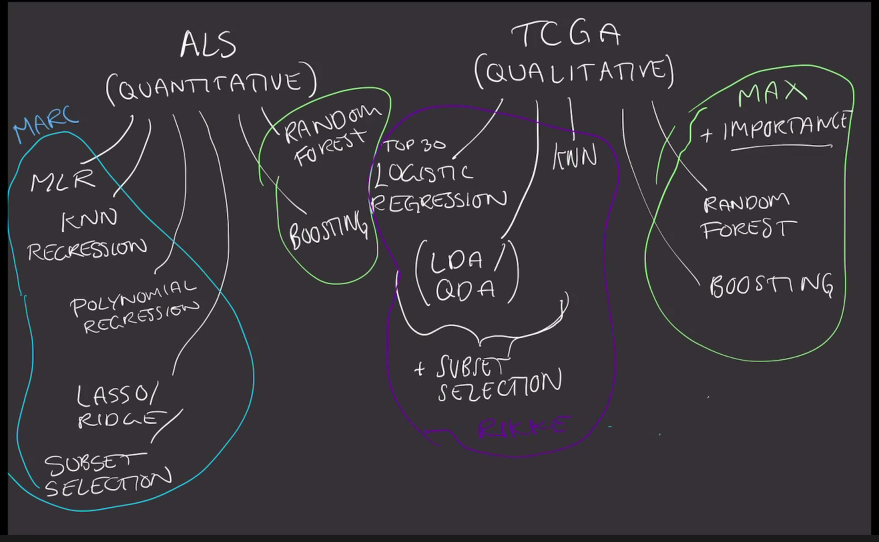 ALS
(QUANTITATIVE)
MARC
MLR
KNN
REGRESSION
POLYNOMIAL
REGRESSION
LASSO/
RIDGE
SUBSET
SELECTION
RANDOM
FOREST
BOOSTING
TCGA
(QUALITATIVE)
TOP 30
LOGISTIC
REGRESSION
KNN
(LDA/
QDA)
+ SUBSET
SELECTION
MAX
+ IMPORTANCE
RANDOM
FOREST
BOOSTING